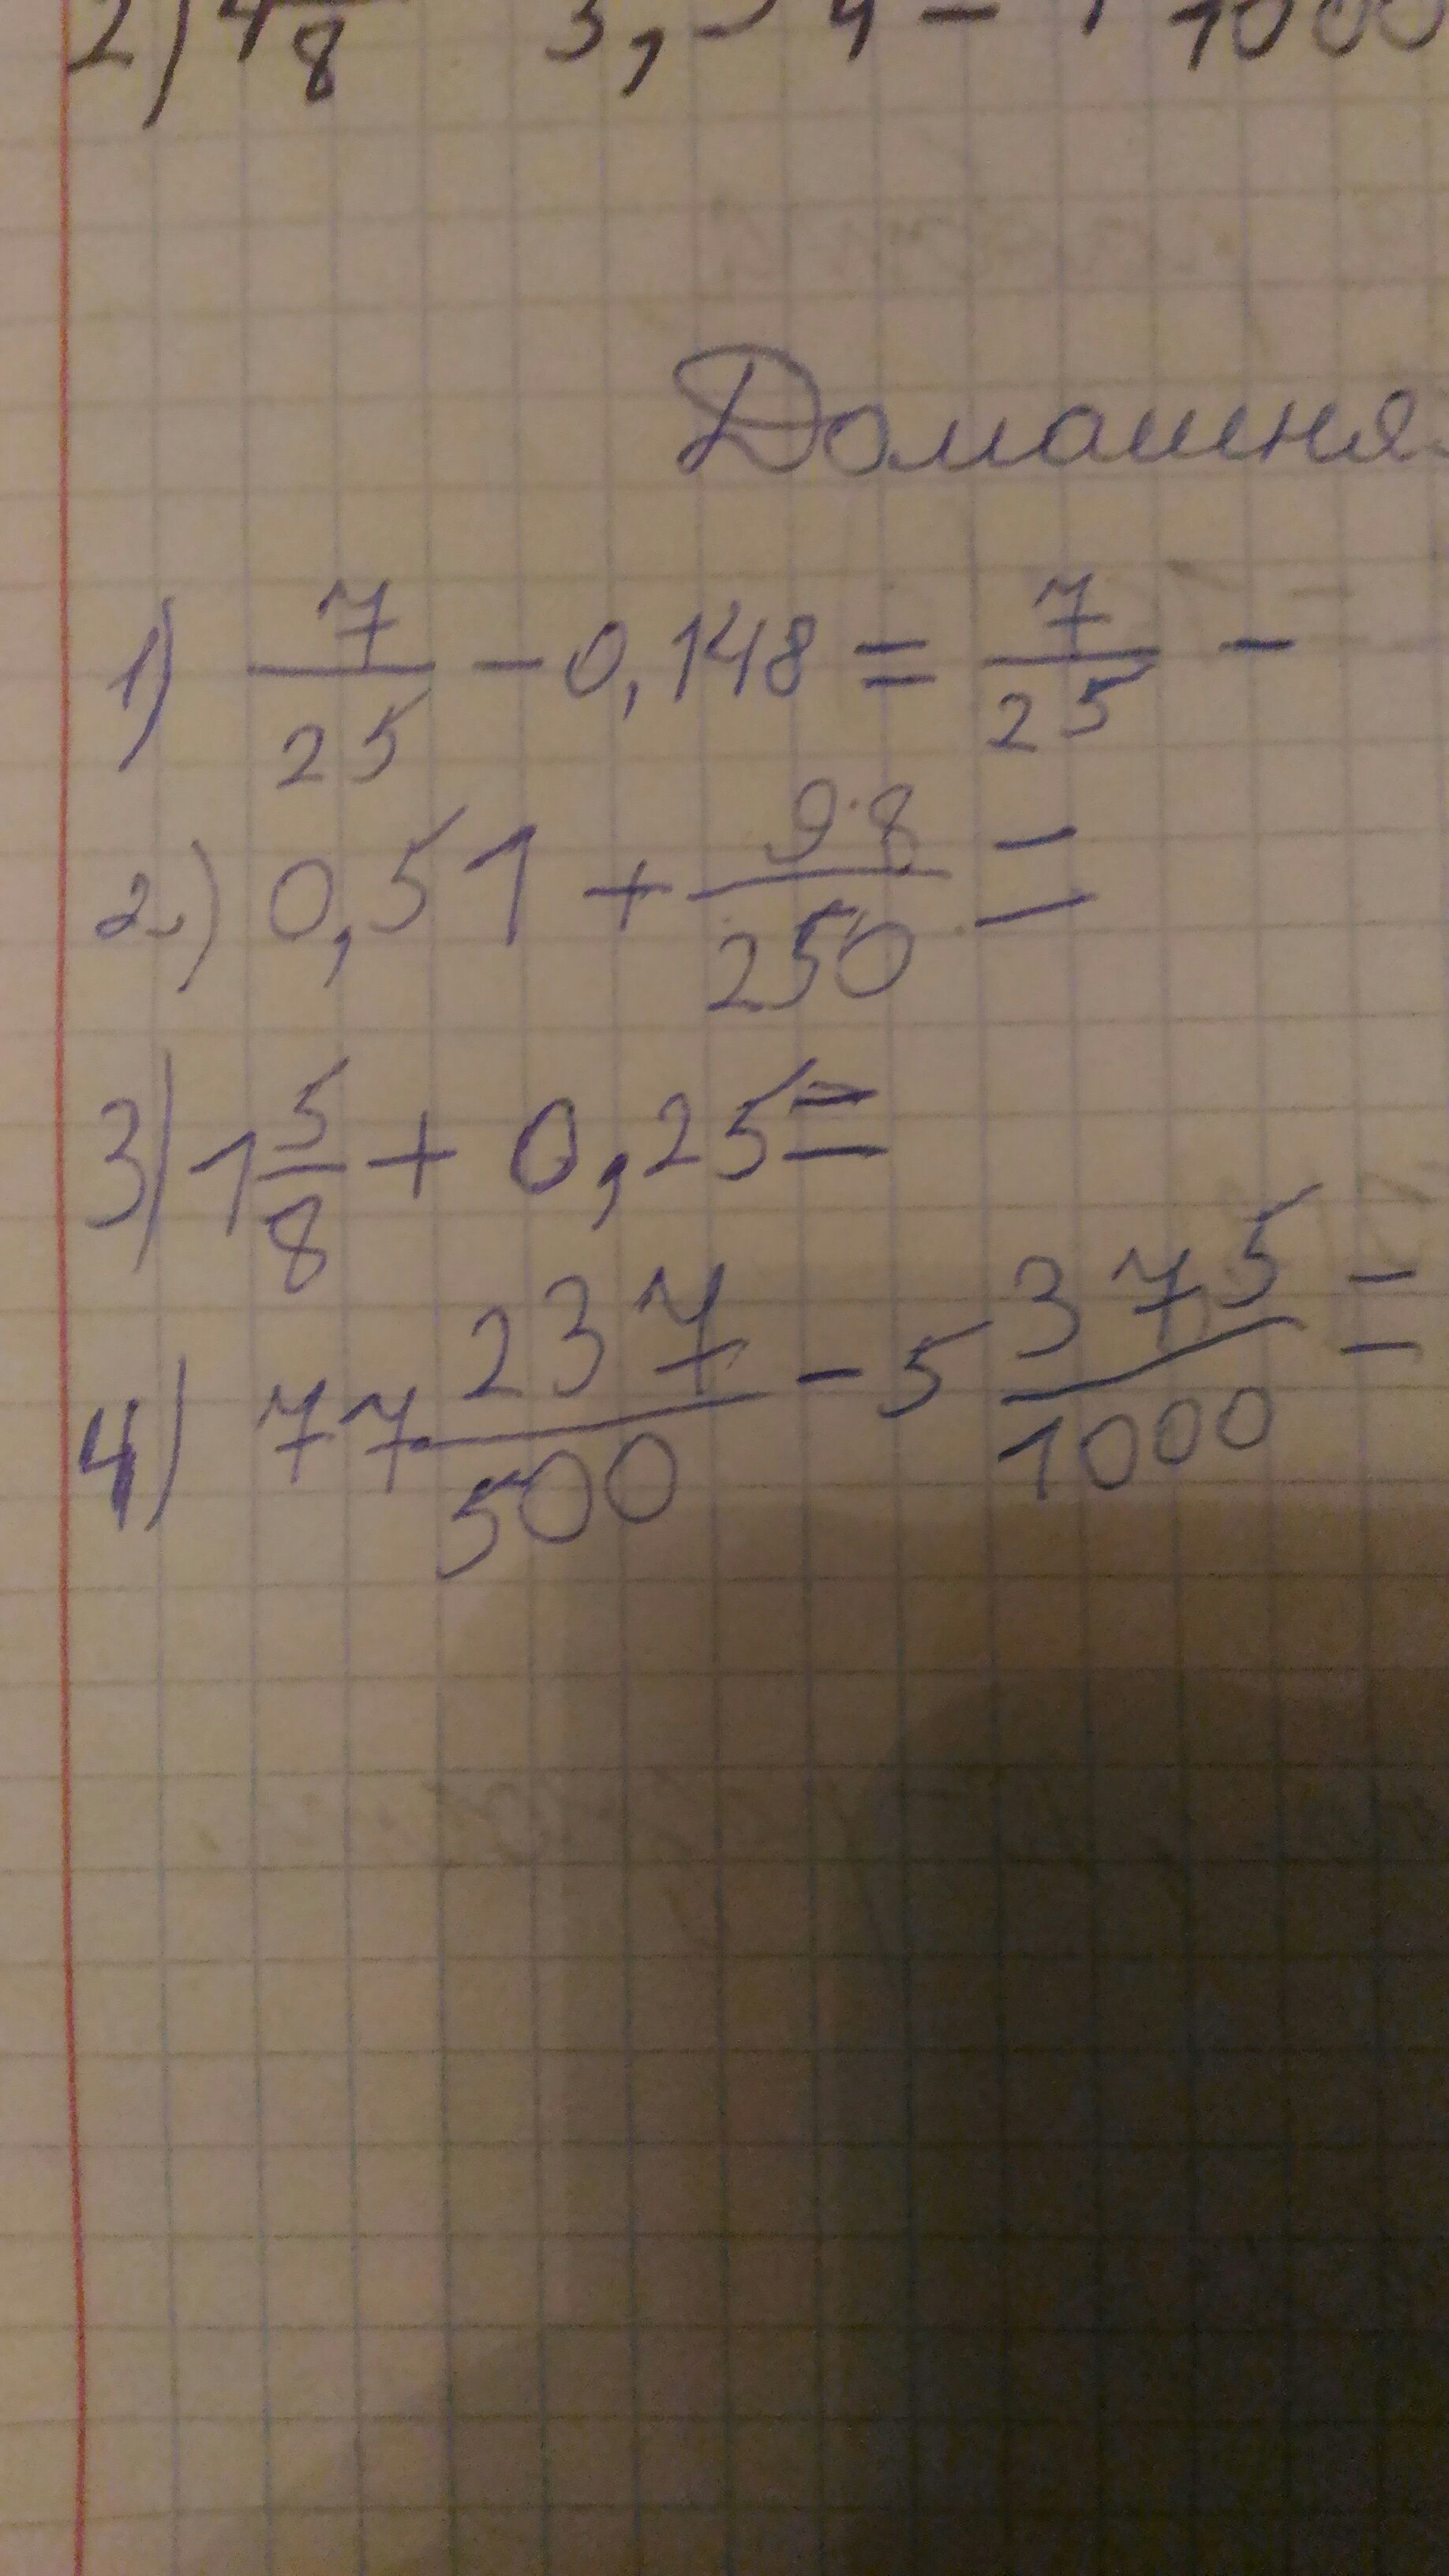 8
1000
Домашня
1) 7/25 - 0,148 = 7/25 -
2) 0,51 + 98/250 =
3) 1 5/8 + 0,25 =
4) 77 237/500 - 5 375/1000 =